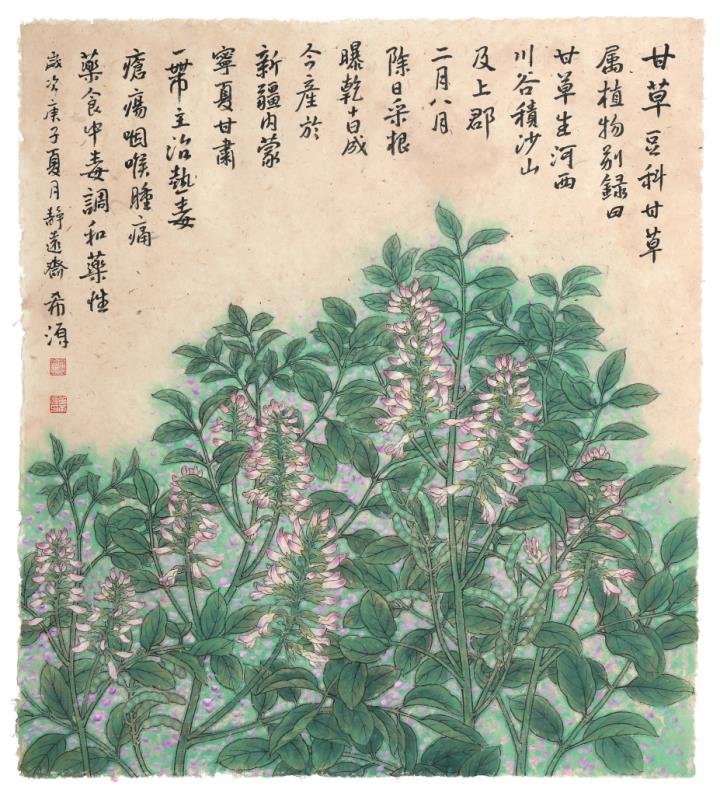 甘草豆科甘草
属植物别録曰
甘草生河西
川谷積沙山
及上郡
二月八月
除日采根
曝乾十日成
今産於
新疆内蒙
寧夏甘肅
一帶主治熱毒
瘡瘍咽喉腫痛
藥食中毒調和藥性
歲次庚子夏月靜遠齋 希源